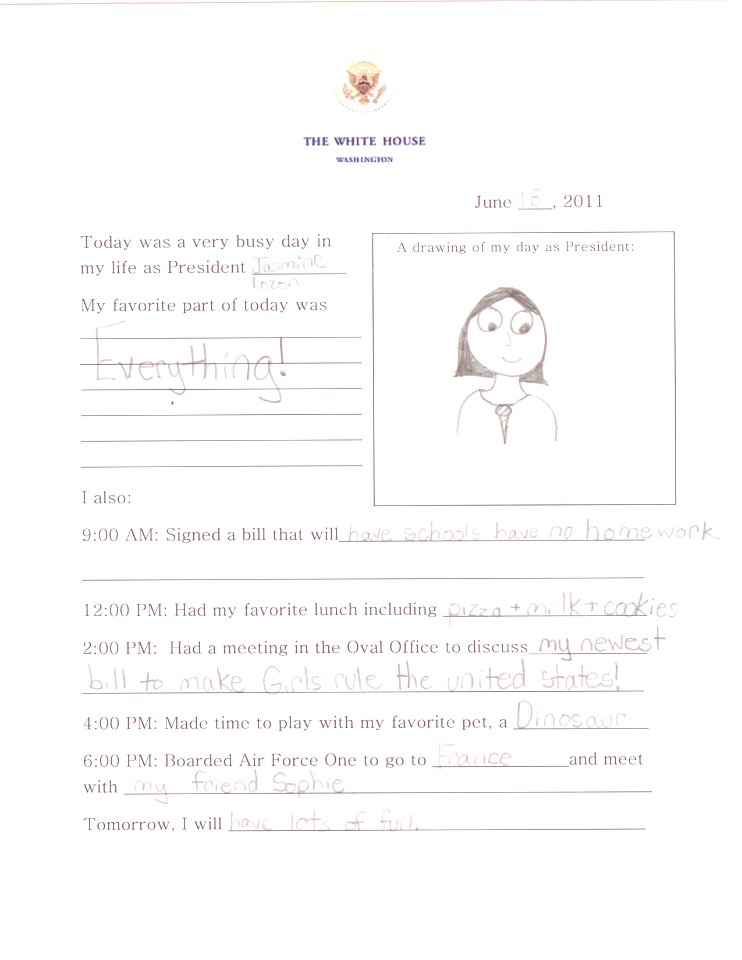 THE WHITE HOUSE
WASHINGTON
June 18, 2011
Today was a very busy day in
my life as President Jasmine
My favorite part of today was
Everything!
A drawing of my day as President:
I also:
9:00 AM: Signed a bill that will have schools have no homework.
12:00 PM: Had my favorite lunch including pizza + milk + cookies
2:00 PM: Had a meeting in the Oval Office to discuss my newest
bill to make Girls rule the united states!
4:00 PM: Made time to play with my favorite pet, a Dinosaur
6:00 PM: Boarded Air Force One to go to France and meet
with my friend Sophie
Tomorrow, I will have lots of full.